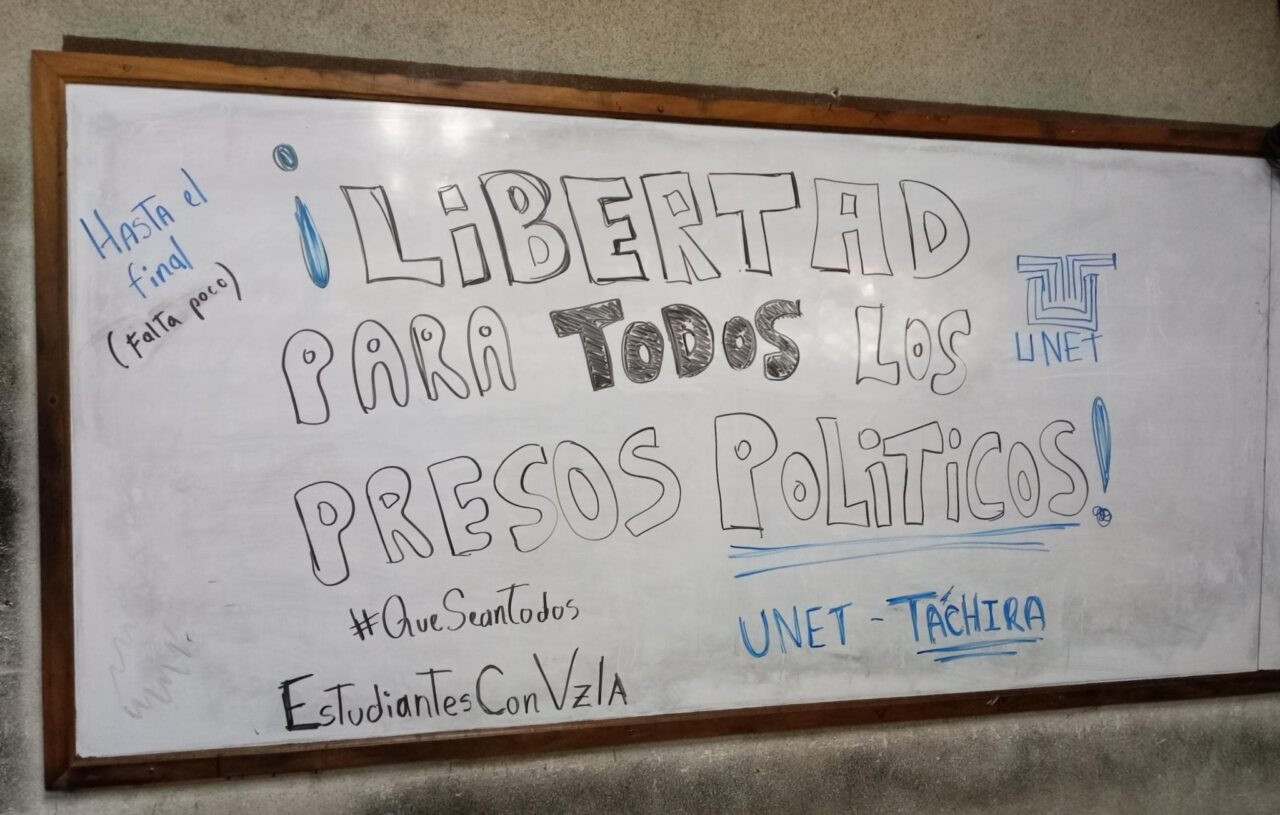 HASTA el
final
(Falta poco)
¡LiBERTAD
PARA TODOS LOS
PRESOS POLiTiCOS!
UNET
#QueSeanTodos
EstudiantesConVzlA
UNET - TÁCHIRA